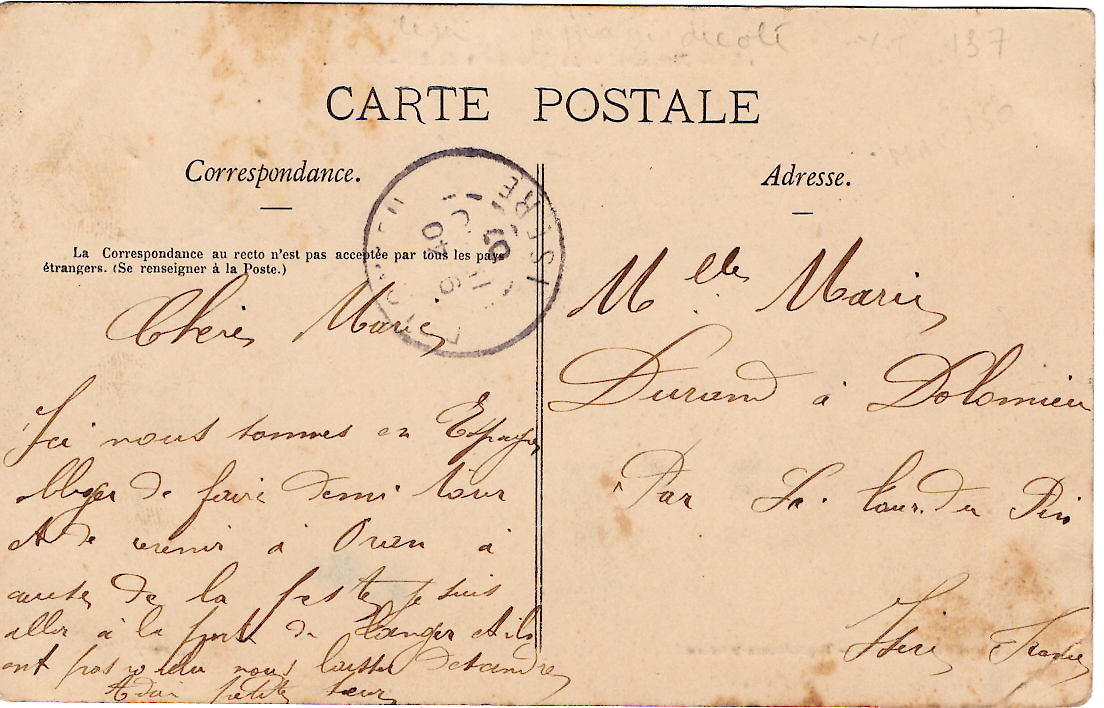 décolé 137
150
CARTE POSTALE
Correspondance.
La Correspondance au recto n'est pas acceptée par tous les pays
étrangers. (Se renseigner à la Poste.)
ISÈRE
40
Cherie Marie
Ici nous sommes en Espagne
obliger de faire demi tour
et de venir à Oran à
cause de la peste je suis
aller à la port de Tanger et ils
ont pas voulu nous laisser désandre
Adieu petite sœur
Adresse.
Melle Marie
Durand à Dolomieu
Par La tour du Pin
Isère France